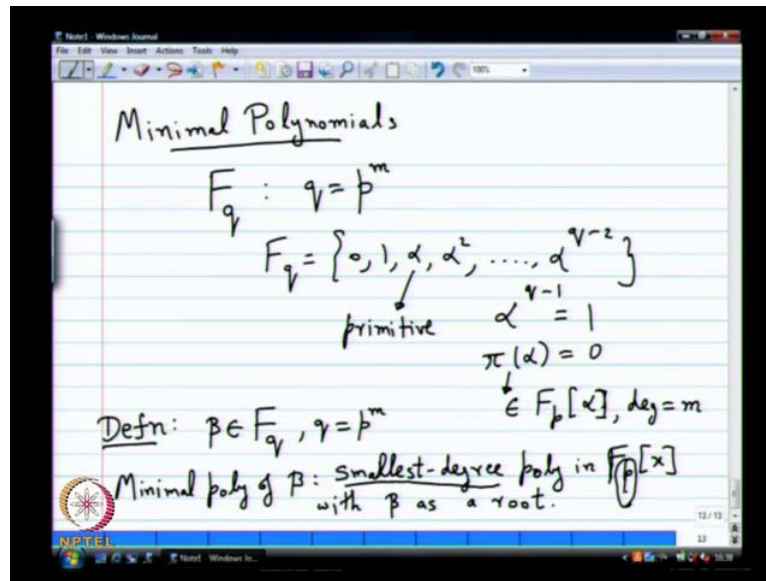 Note1 - Windows Journal
File Edit View Insert Actions Tools Help
100%
Minimal Polynomials
F_q : q = p^m
F_q = {0, 1, α, α^2, ...., α^{q-2}}
primitive
α^{q-1} = 1
π(α) = 0
∈ F_p[α], deg = m
Defn: β ∈ F_q, q = p^m
Minimal poly of β: smallest-degree poly in F_p[x]
with β as a root.
13/13
13
NPTEL
Note1 - Windows Jo...
16:38